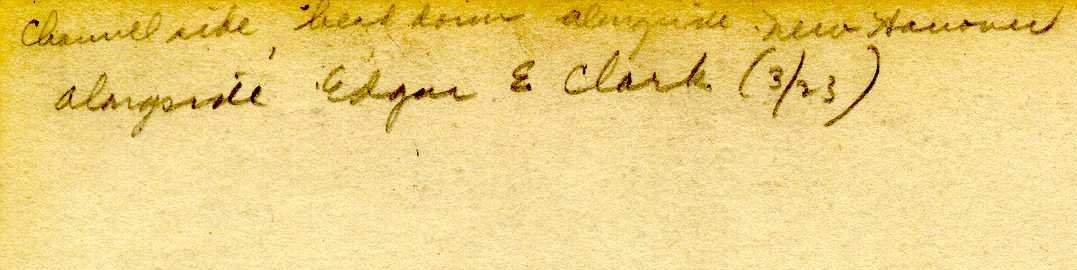 Channel side, head down alongside New Hanover
alongside Edgar E Clark (3/23)